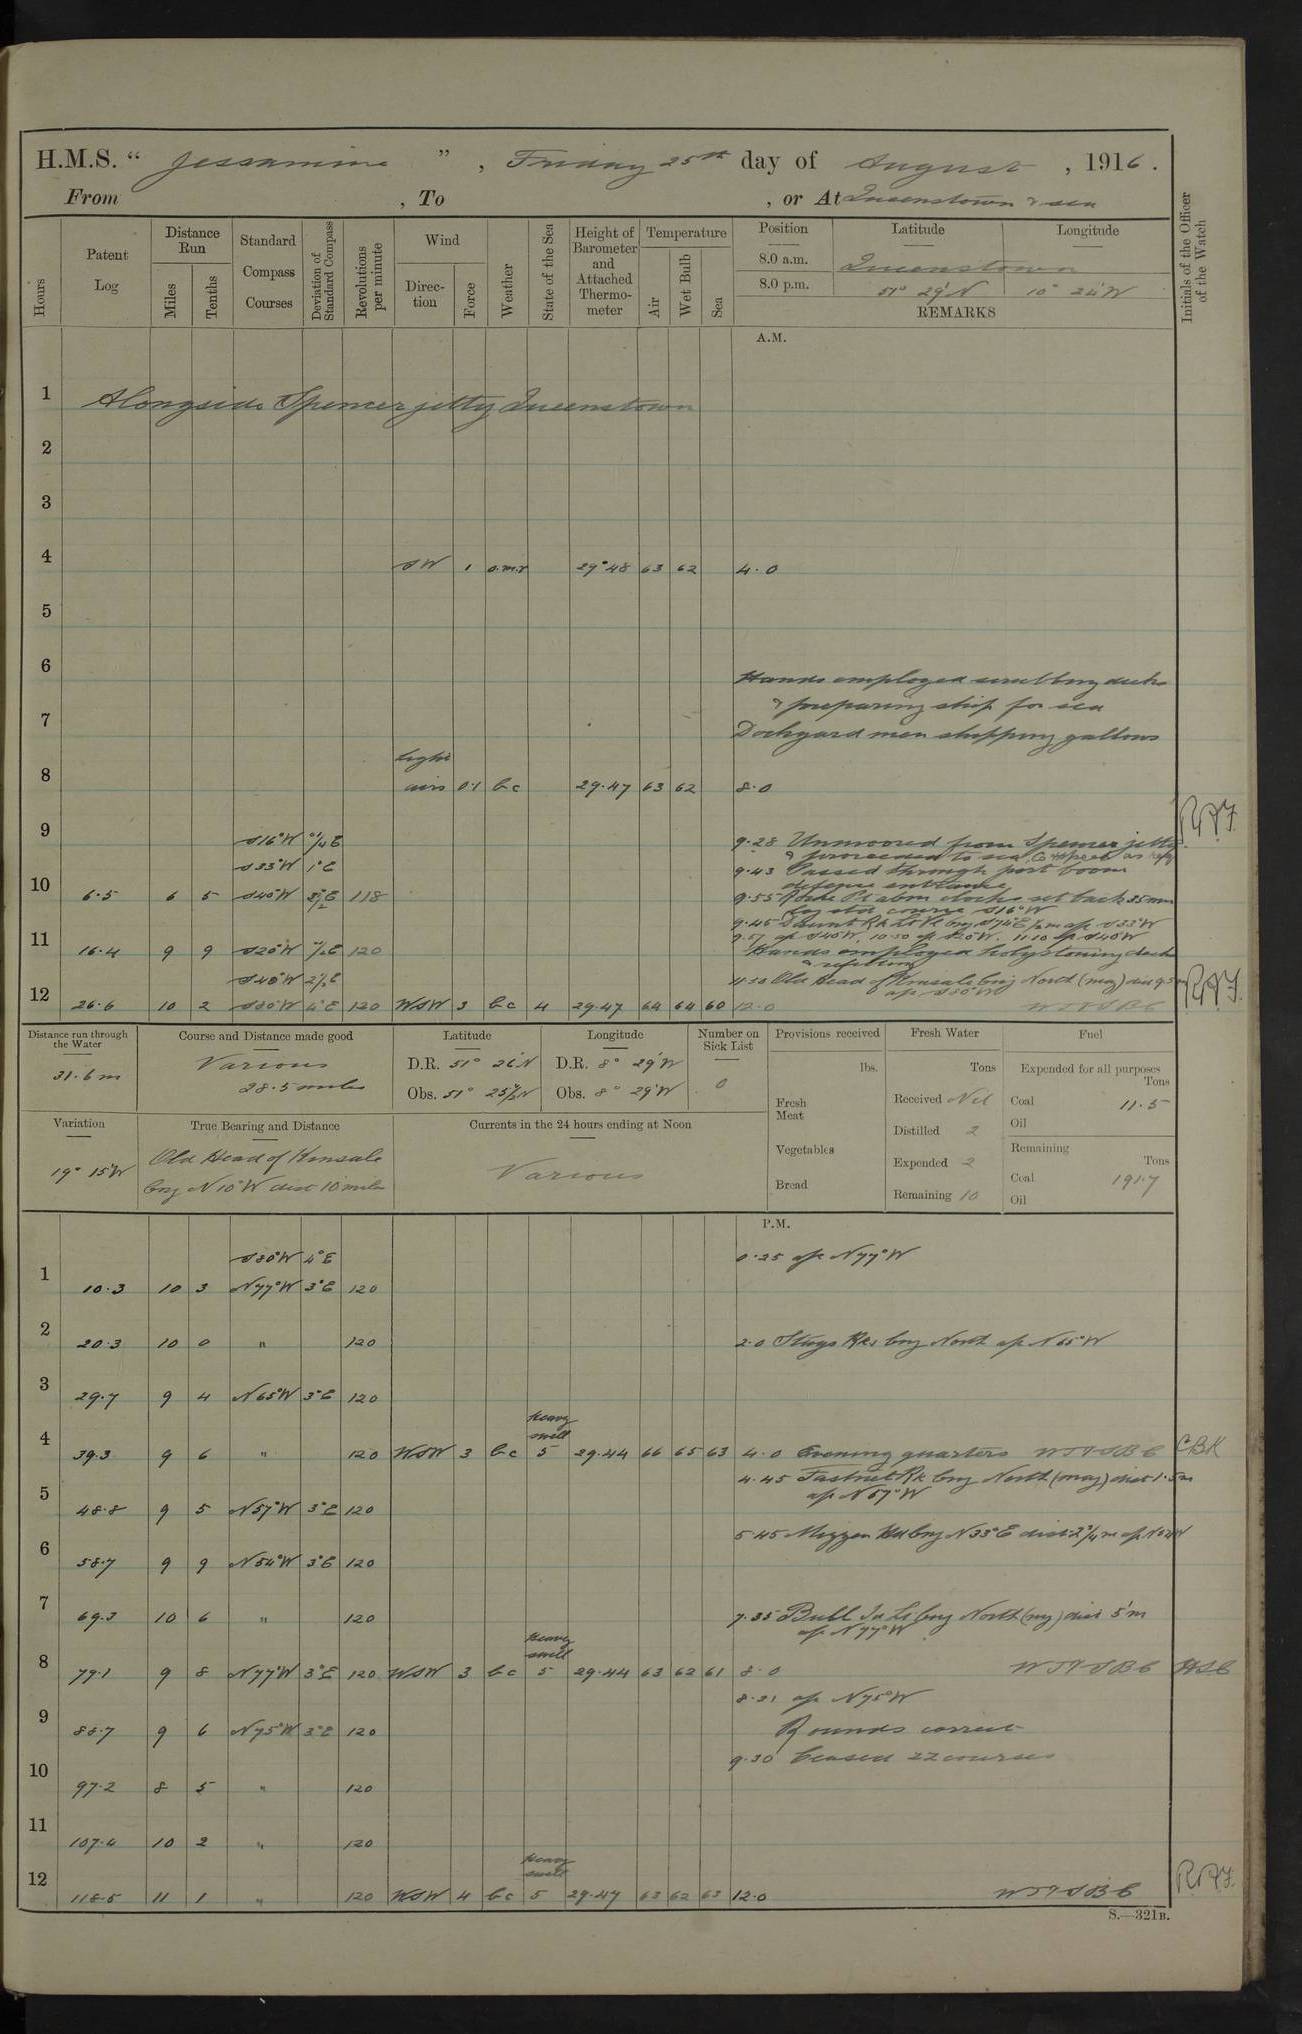 H.M.S. “ Jessamine ” , Friday 25th day of August , 1916 .
From , To , or At Queenstown & sea
Hours
Patent Log
Distance Run
Miles
Tenths
Standard Compass Courses
Deviation of Standard Compass
Revolutions per minute
Wind
Direction
Force
Weather
State of the Sea
Height of Barometer and Attached Thermometer
Temperature
Air
Wet Bulb
Sea
Position
8.0 a.m.
8.0 p.m.
Latitude
Longitude
Queenstown
51° 29' N 10° 24' W
REMARKS
Initials of the Officer of the Watch
A.M.
1 Alongside Spencer jetty Queenstown
2
3
4 SW 1 o.m.r 29.48 63 62 4.0
5
6
Hands employed scrubbing decks
7 & preparing ship for sea
Dockyard men shipping gallows
8 light airs 0.1 bc 29.47 63 62 8.0
9 S16°W
9.28 Unmoored from Spencer jetty
& proceeded to sea, Co & speed as req
S33°W 1°E
9.43 Passed through port boom
defence entrance
10 6.5 6 5 S40°W 118
9.55 Roche Pt abm clocks set back 35 mins
S16°W
11 16.4 9 9 S20°W 120
9.57 a/c S40°W, 10.50 a/c S20°W. 11.10 a/c S40°W
Hands employed holystoning decks
& refitting
S40°W
11.50 Old Head of Kinsale brg North (mag)
12 26.6 10 2 S80°W 4°E 120 WSW 3 bc 4 29.47 64 64 60 12.0 WT&SBC
Distance run through the Water
31.6 m
Course and Distance made good
Various
28.5 miles
Latitude
D.R. 51° 26' N
Obs. 51° 25½ N
Longitude
D.R. 8° 29' W
Obs. 8° 29' W
Number on Sick List
0
Provisions received
lbs.
Fresh Meat
Vegetables
Bread
Fresh Water
Tons
Received Nil
Distilled 2
Expended 2
Remaining 10
Fuel
Expended for all purposes
Tons
Coal 11.5
Oil
Remaining
Tons
Coal 191.7
Oil
Variation
19° 15' W
True Bearing and Distance
Old Head of Kinsale
brg N 10° W dist 10 miles
Currents in the 24 hours ending at Noon
Various
P.M.
S80°W 4°E 0.25 a/c N77°W
1 10.3 10 3 N77°W 3°E 120
2 20.3 10 0 " 120 2.0 Stags Rks brg North a/c N65°W
3 29.7 9 4 N65°W 3°E 120
heavy swell
4 39.3 9 6 " 120 WSW 3 bc 5 29.44 66 65 63 4.0 Evening quarters WT&SBC CBK
4.45 Fastnet Rk brg North (mag) dist 1.5m
a/c N57°W
5 48.8 9 5 N57°W 3°E 120
5.45 Mizzen Hd brg N33°E dist 2¼ m a/c N54W
6 58.7 9 9 N54°W 3°E 120
7 69.3 10 6 " 120 7.35 Bull In Lt brg North (mg) dist 5'm
a/c N77°W
heavy swell
8 79.1 9 8 N77°W 3°E 120 WSW 3 bc 5 29.44 63 62 61 8.0 WT&SBC
8.21 a/c N75°W
9 88.7 9 6 N75°W 3°E 120 Rounds correct
9.30 Ceased zz courses
10 97.2 8 5 " 120
11 107.4 10 2 " 120
heavy swell
12 118.5 11 1 " 120 WSW 4 bc 5 29.47 63 62 63 12.0 WT&SBC
S.—321B.